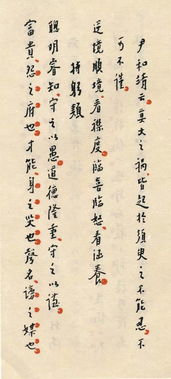 尹和靖云莫大之禍皆起於須臾之不能忍不
可不謹
逆境順境看襟度臨喜臨怒看涵養
持躬類
聰明睿知守之以愚道德隆重守之以謙
富貴怨之府也才能身之災也聲名謗之媒也